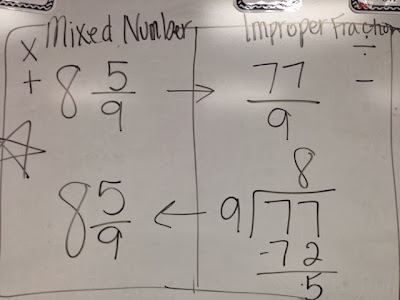 Mixed Number Improper Fraction
× ÷
+ 8 5/9 → 77/9 −
8
8 5/9 ← 9 77
-72
5